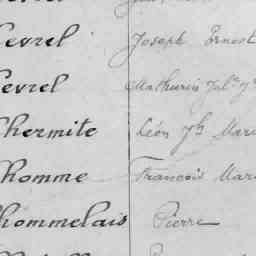 evrel Joseph Ernest
evrel Mathurin Jul.
hermite Léon Jh Mari
homme François Mari
hommelais Pierre